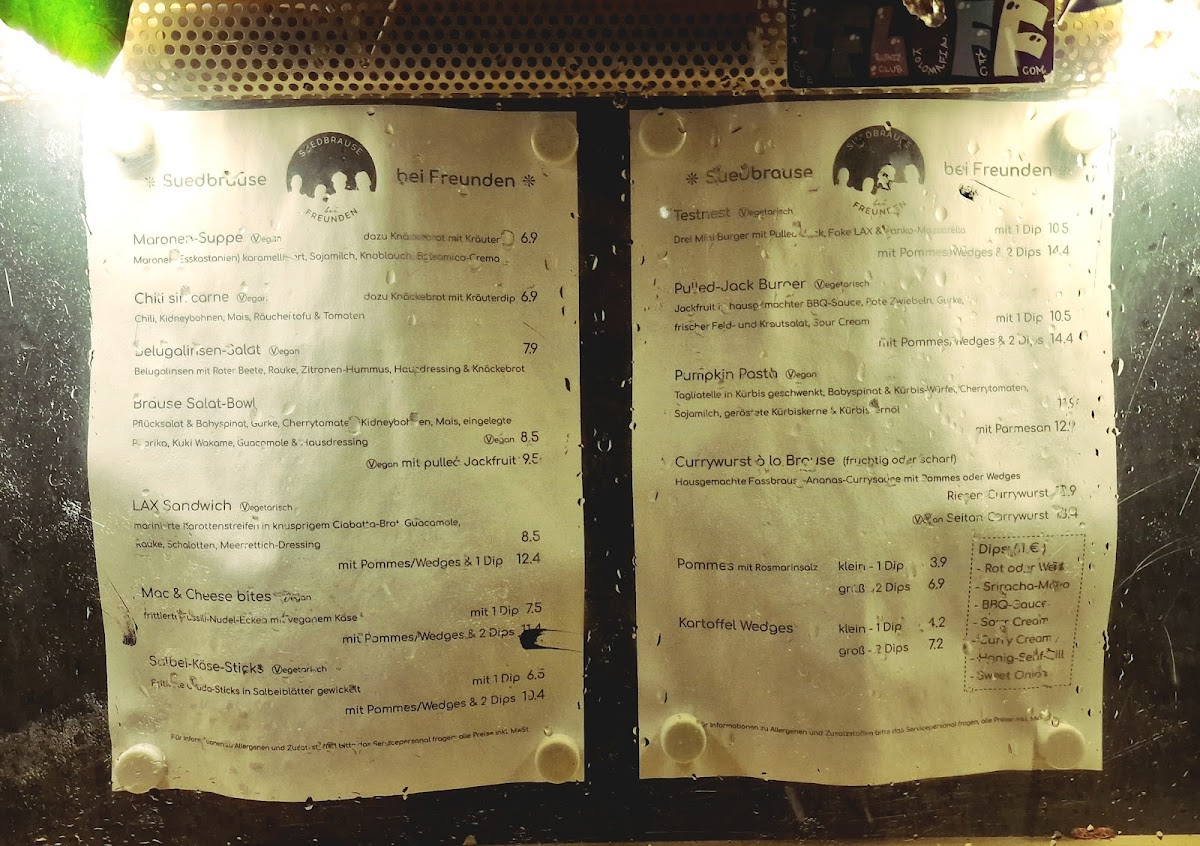 SUEDBRAUSE
bei
FREUNDEN
Suedbrause bei Freunden
Maronen-Suppe Vegan dazu Knäckebrot mit Kräuter 6.9
(Esskastanien) karamellisiert, Sojamilch, Knoblauch, Balsamico-Crema
Chili sin carne Vegan dazu Knäckebrot mit Kräuterdip 6.9
Chili, Kidneybohnen, Mais, Räuchertofu & Tomaten
Belugalinsen-Salat Vegan 7.9
Belugalinsen mit Roter Beete, Rauke, Zitronen-Hummus, Hausdressing & Knäckebrot
Brause Salat-Bowl
Pflücksalat & Babyspinat, Gurke, Cherrytomate, Kidneybohnen, Mais, eingelegte
Paprika, Kuki Wakame, Guacamole & Hausdressing Vegan 8.5
Vegan mit pulled Jackfruit 9.5
LAX Sandwich Vegetarisch
marinierte Karottenstreifen in knusprigem Ciabatta-Brot, Guacamole,
Rauke, Schalotten, Meerrettich-Dressing 8.5
mit Pommes/Wedges & 1 Dip 12.4
Mac & Cheese bites Vegan
frittierte Fussili-Nudel-Ecken mit veganem Käse mit 1 Dip 7.5
mit Pommes/Wedges & 2 Dips 11.4
Salbei-Käse-Sticks Vegetarisch
Frittierte Gouda-Sticks in Salbeiblätter gewickelt mit 1 Dip 6.5
mit Pommes/Wedges & 2 Dips 10.4
Für Informationen zu Allergenen und Zusatzstoffen bitte das Servicepersonal fragen, alle Preise inkl. MwSt.
SUEDBRAUSE
bei
FREUNDEN
Suedbrause bei Freunden
Testnest Vegetarisch
Drei Mini Burger mit Pulled Jack, Fake LAX & Panko-Mozzarella mit 1 Dip 10.5
mit Pommes/Wedges & 2 Dips 14.4
Pulled-Jack Burner Vegetarisch
Jackfruit in hausgemachter BBQ-Sauce, Rote Zwiebeln, Gurke,
frischer Feld- und Krautsalat, Sour Cream mit 1 Dip 10.5
mit Pommes/Wedges & 2 Dips 14.4
Pumpkin Pasta Vegan
Tagliatelle in Kürbis geschwenkt, Babyspinat & Kürbis-Würfel, Cherrytomaten,
Sojamilch, geröstete Kürbiskerne & Kürbiskernöl
mit Parmesan
Currywurst à la Brause (fruchtig oder scharf)
Hausgemachte Fassbrause-Ananas-Currysauce mit Pommes oder Wedges
Riesen Currywurst
Vegan Seitan Currywurst
Pommes mit Rosmarinsalz klein - 1 Dip 3.9
groß - 2 Dips 6.9
Kartoffel Wedges klein - 1 Dip 4.2
groß - 2 Dips 7.2
Dips (1 €)
- Rot oder Weiß
- Sriracha-Mayo
- BBQ-Sauce
- Sour Cream
- Curry Cream
- Honig-Senf-Dill
- Sweet Onion
Für Informationen zu Allergenen und Zusatzstoffen bitte das Servicepersonal fragen, alle Preise inkl. MwSt.